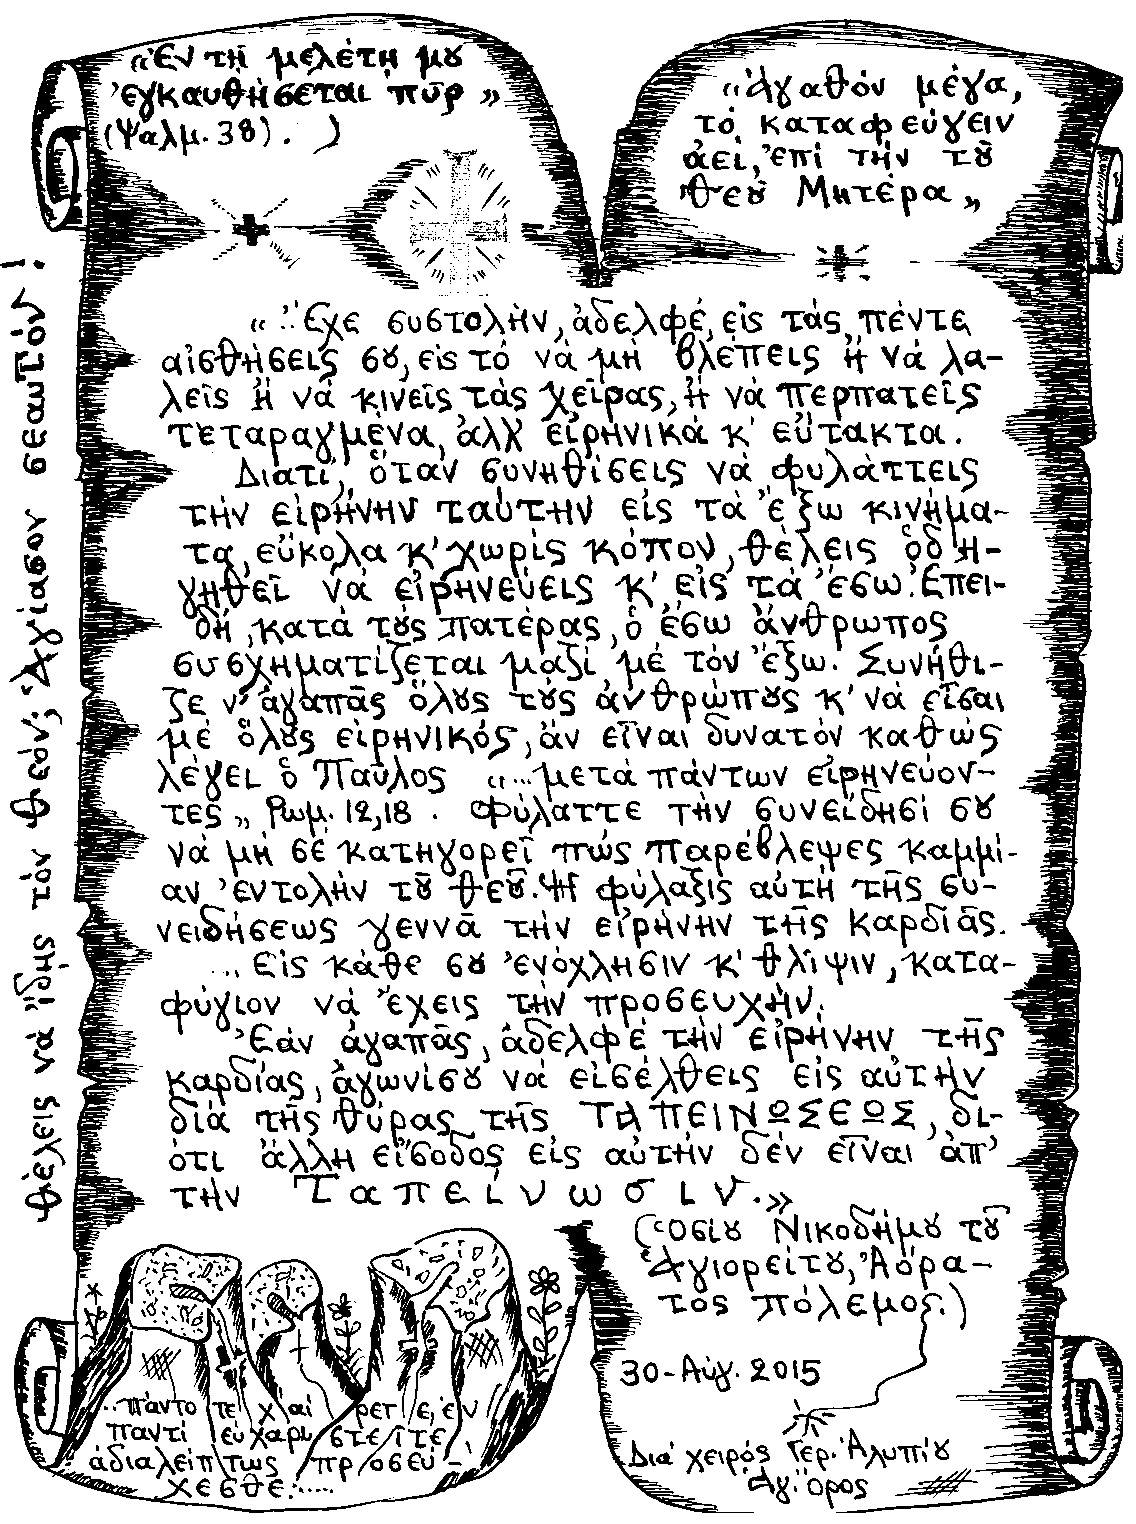 «Ἐν τῇ μελέτῃ μȣ
ἐγκαυθήσεται πῦρ»
(Ψαλμ. 38).
«Ἀγαθόν μέγα,
τό καταφεύγειν
ἀεί, ἐπί τήν τȣ͂
Θεȣ͂ Μητέρα»
«..Ἔχε συστολήν, ἀδελφέ, εἰς τάς πέντε
αἰσθήσεις σȣ, εἰς τό νά μή βλέπεις ἤ νά λα-
λεῖς ἤ νά κινεῖς τάς χεῖρας, ἤ νά περπατεῖς
τεταραγμένα, ἀλλ' εἰρηνικά κ' εὔτακτα.
Διατί, ὅταν συνηθίσεις νά φυλάττεις
τήν εἰρήνην ταύτην εἰς τά ἔξω κινήμα-
τα, εὔκολα κ' χωρίς κόπον, θέλεις ὁδη-
γηθεῖ νά εἰρηνεύεις κ' εἰς τά ἔσω. Ἐπει-
δή, κατά τȣ́ς πατέρας, ὁ ἔσω ἄνθρωπος
συσχηματίζεται μαζί μέ τόν ἔξω. Συνήθι-
ζε ν' ἀγαπᾶς ὅλȣς τȣ́ς ἀνθρώπȣς κ' νά εἶσαι
μέ ὅλȣς εἰρηνικός, ἄν εἶναι δυνατόν καθώς
λέγει ὁ Παῦλος «...μετά πάντων εἰρηνεύον-
τες» Ρωμ. 12,18. Φύλαττε τήν συνείδησί σȣ
νά μή σέ κατηγορεῖ πώς παρέβλεψες καμμί-
αν ἐντολήν τȣ͂ Θεȣ͂. Ἡ φύλαξις αὐτή τῆς συ-
νειδήσεως γεννᾶ τήν εἰρήνην τῆς καρδιᾶς.
..Εἰς κάθε σȣ ἐνόχλησιν κ' θλίψιν, κατα-
φύγιον νά ἔχεις τήν προσευχήν.
Ἐάν ἀγαπᾶς, ἀδελφέ τήν εἰρήνην τῆς
καρδίας, ἀγωνίσȣ νά εἰσέλθεις εἰς αὐτήν
διά τῆς θύρας τῆς ΤΑΠΕΙΝΩΣΕΩΣ, δι-
ότι ἄλλη εἴσοδος εἰς αὐτήν δέν εἶναι ἀπ'
τήν Ταπείνωσιν.»
(Ὁσίȣ Νικοδήμȣ τȣ͂
Ἁγιορείτȣ, Ἀόρα-
τος πόλεμος.)
30-Αὐγ. 2015
Διά χειρός Γερ. Ἀλυπίȣ
Ἁγ. Ὄρος
..πάντοτε χαίρετε, ἐν
παντί εὐχαριστεῖτε
ἀδιαλείπτως προσεύ-
χεσθε.....
Θέλεις νά ἴδῃς τόν Θεόν; Ἁγίασον σεαυτόν!